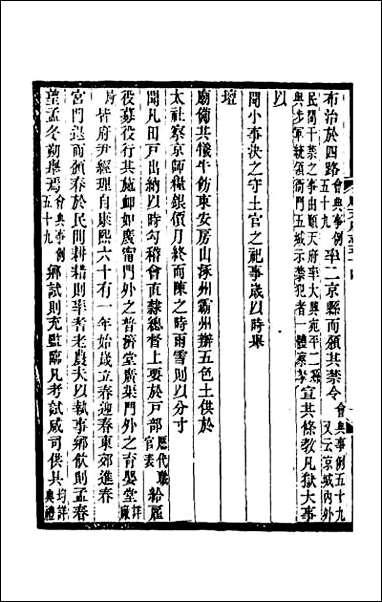 布治於四路會典事例五十九率二京縣而頒其禁令會典事例五十九又云京城內外
民間干禁之事由順天府率大興宛平二縣與步軍統領衙門五城示禁犯者一體察拏宣其條敎凡獄大事
以
聞小事決之守土官之祀事歲以時舉
壇
廟備其犧牛飭東安房山涿州霸州辦五色土供於
太社察京師糧銀價月終而陳之時雨雪則以分寸
聞凡田戶出納以時勾稽會直隸總督上要於戶部歷代職官表給雇
役募役行其施卹如廣甯門外之普濟堂廣渠門外之育嬰堂詳廠
局皆府尹經理自康熙六十有一年始歲立春迎春東郊進春
宮門退而頒春於民間耕耤則率耆老農夫以執事鄉飲則孟春
望孟冬朔舉焉會典事例五十九鄉試則充監臨凡考試咸司供具均詳典禮